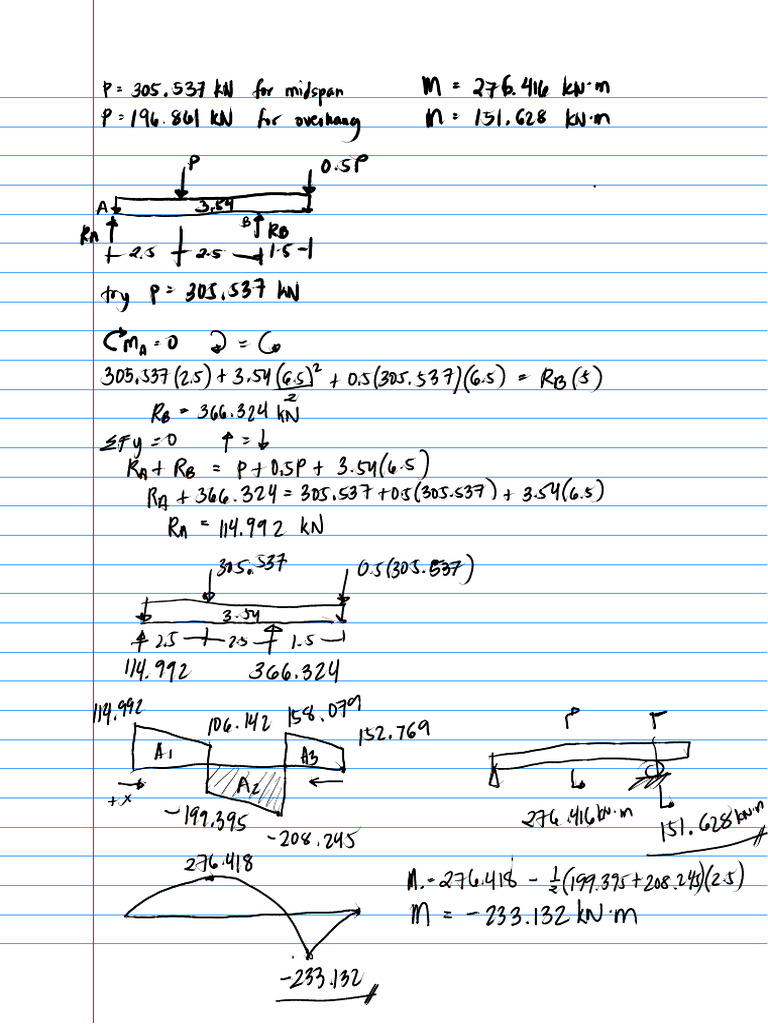 P = 305.537 kN for midspan M = 276.416 kN·m
P = 196.861 kN for overhang M = 151.628 kN·m
P 0.5P
A 3.54
RA B RB
2.5 2.5 1.5
try P = 305.537 kN
MA = 0 =
305.537(2.5) + 3.54(6.5)²/2 + 0.5(305.537)(6.5) = RB(5)
RB = 366.324 kN
ΣFy = 0 ↑ = ↓
RA + RB = P + 0.5P + 3.54(6.5)
RA + 366.324 = 305.537 + 0.5(305.537) + 3.54(6.5)
RA = 114.992 kN
305.537 0.5(305.537)
3.54
2.5 2.5 1.5
114.992 366.324
114.992 106.142 158.079 152.769
A1 A2 A3
+x
-199.395
-208.245
276.416 kN·m
151.628 kN·m
276.418
M = 276.418 - ½(199.395+208.245)(2.5)
M = -233.132 kN·m
-233.132